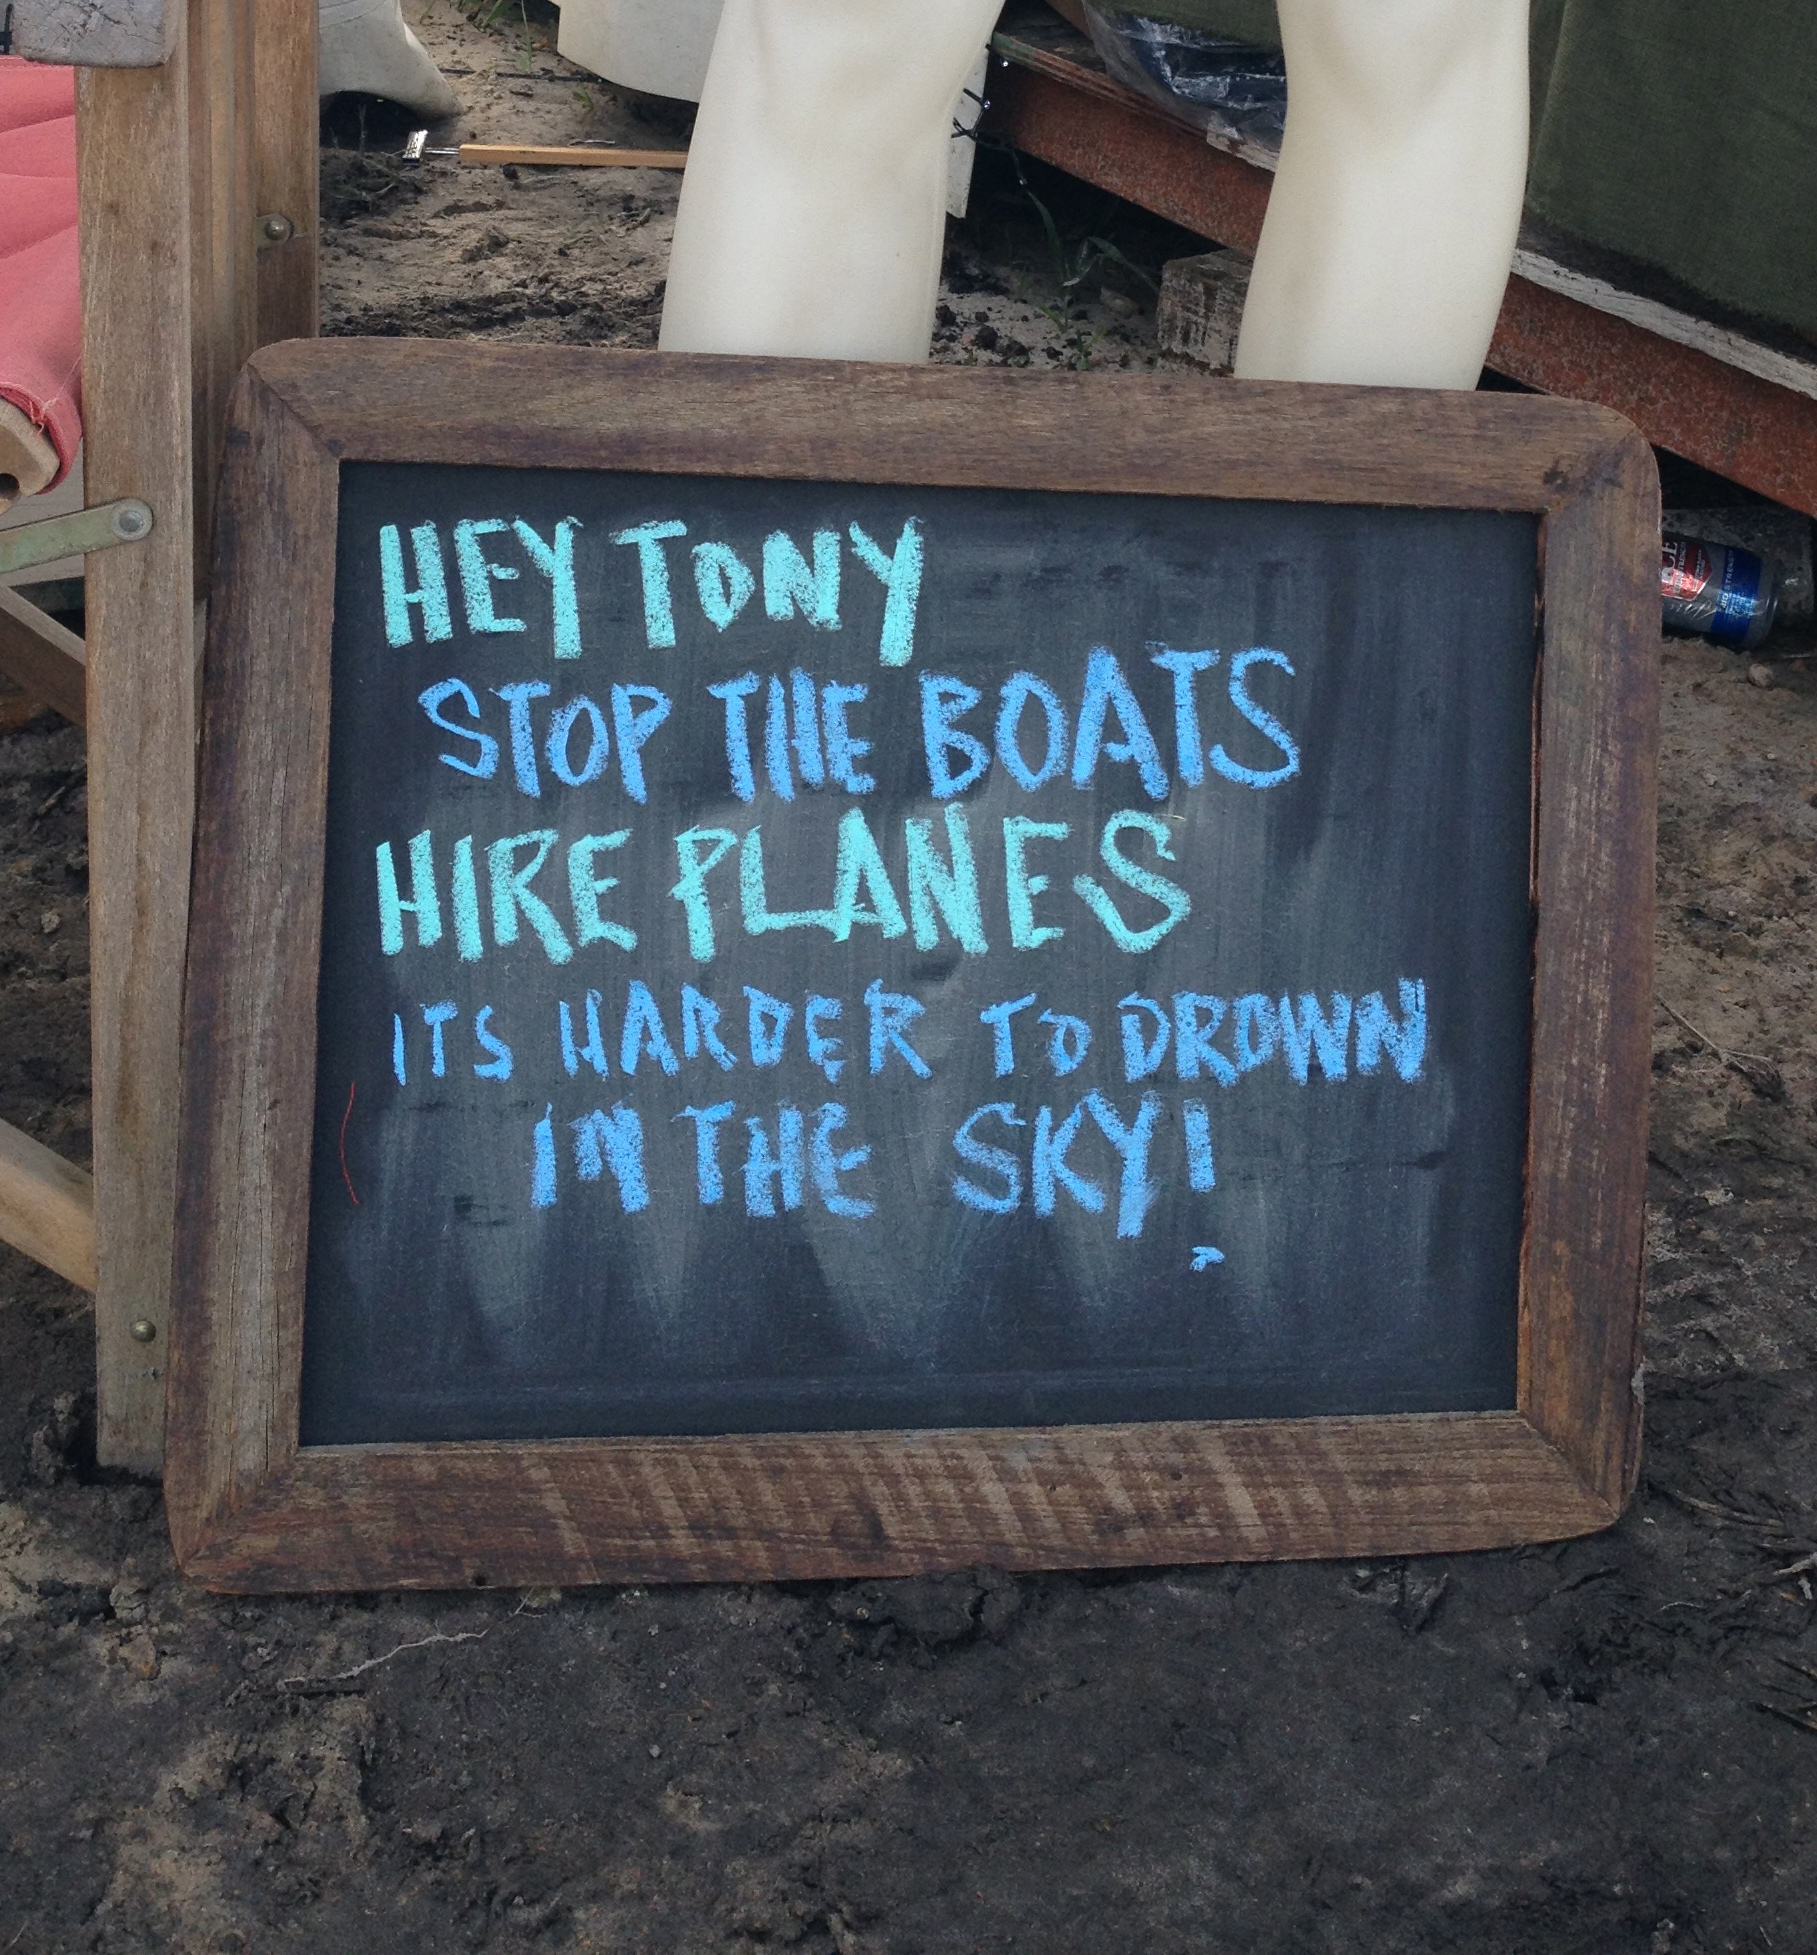 HEY TONY
STOP THE BOATS
HIRE PLANES
ITS HARDER TO DROWN
IN THE SKY!